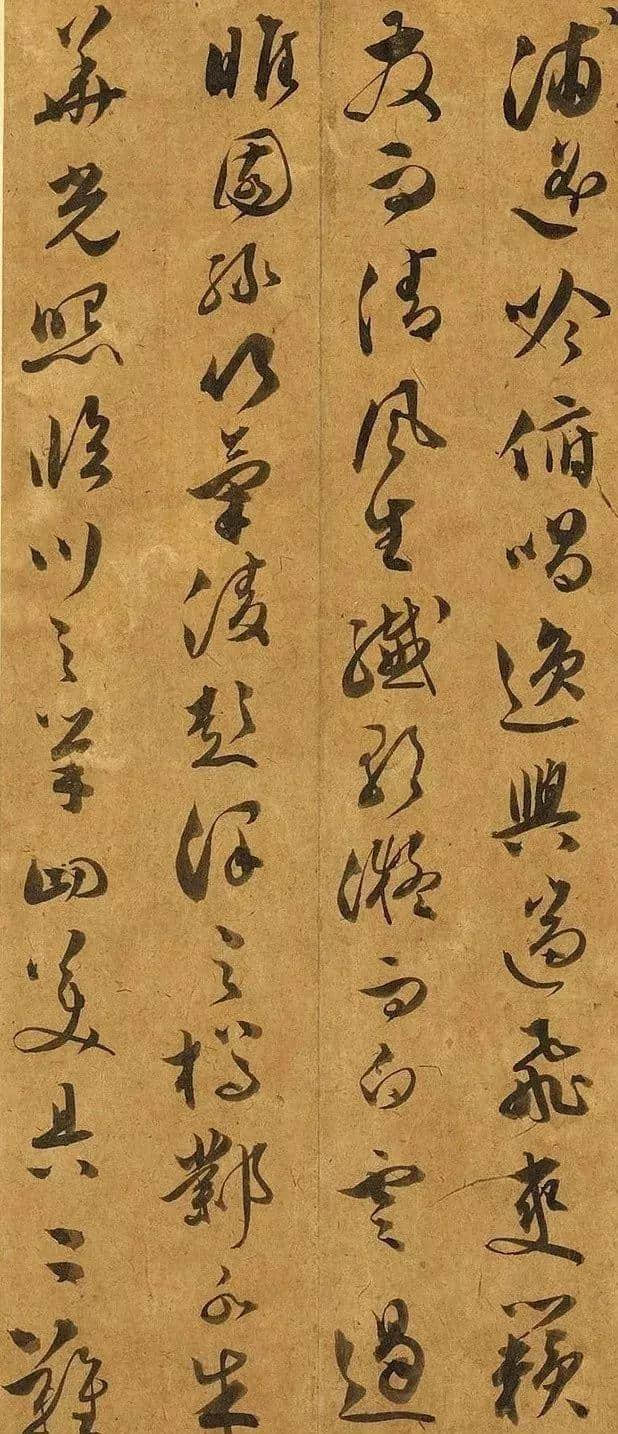 浦遙吟俯唱逸興遄飛爽籟
發而清風生纖歌凝而白雲遏
睢園綠竹氣淩彭澤之樽鄴水朱
華光照臨川之筆四美具二難